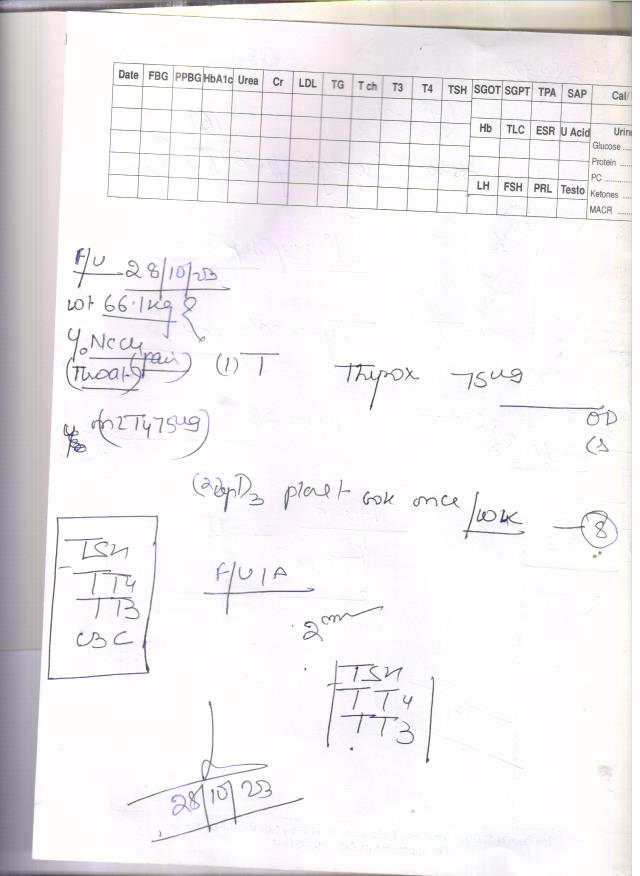 Date FBG PPBG HbA1c Urea Cr LDL TG T ch T3 T4 TSH SGOT SGPT TPA SAP Cal/
Hb TLC ESR U Acid Urin
Glucose ....
Protein ....
PC ....
LH FSH PRL Testo Ketones ....
MACR ....
F/U 28/10/23
wt 66.1kg
(Throat) (pain) (1) T Thyrox 75ug
OD
T4 75ug)
D3 once /wk — 8
TSH
TT4
TT3
CBC
F/U/A
2
TSH
TT4
TT3
28/10/23